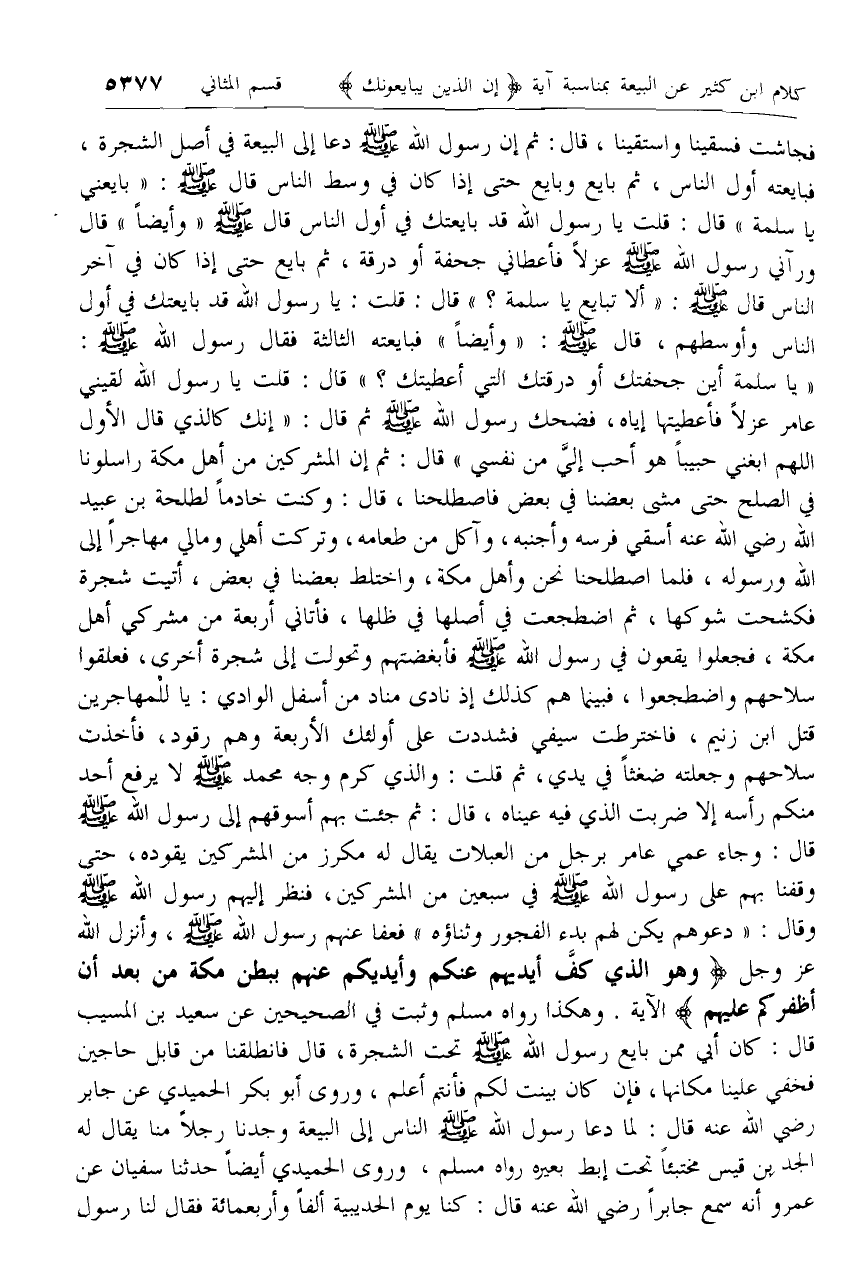 كلام ابن كثير عن البيعة بمناسبة آية ﴿ إن الذين يبايعونك ﴾ قسم المثاني ٥٣٧٧
فجاشت فسقينا واستقينا ، قال : ثم إن رسول الله ﷺ دعا إلى البيعة في أصل الشجرة ،
فبايعته أول الناس ، ثم بايع وبايع حتى إذا كان في وسط الناس قال ﷺ : « بايعني
يا سلمة » قال : قلت يا رسول الله قد بايعتك في أول الناس قال ﷺ « وأيضاً » قال
ورآني رسول الله ﷺ عزلاً فأعطاني جحفة أو درقة ، ثم بايع حتى إذا كان في آخر
الناس قال ﷺ : « ألا تبايع يا سلمة ؟ » قال : قلت : يا رسول الله قد بايعتك في أول
الناس وأوسطهم ، قال ﷺ : « وأيضاً » فبايعته الثالثة فقال رسول الله ﷺ :
« يا سلمة أين جحفتك أو درقتك التي أعطيتك ؟ » قال : قلت يا رسول الله لقيني
عامر عزلاً فأعطيتها إياه، فضحك رسول الله ﷺ ثم قال : « إنك كالذي قال الأول
اللهم ابغني حبيباً هو أحب إليَّ من نفسي » قال : ثم إن المشركين من أهل مكة راسلونا
في الصلح حتى مشى بعضنا في بعض فاصطلحنا ، قال : وكنت خادماً لطلحة بن عبيد
الله رضي الله عنه أسقي فرسه وأجنبه، وآكل من طعامه، وتركت أهلي ومالي مهاجراً إلى
الله ورسوله ، فلما اصطلحنا نحن وأهل مكة، واختلط بعضنا في بعض ، أتيت شجرة
فكشحت شوكها ، ثم اضطجعت في أصلها في ظلها ، فأتاني أربعة من مشركي أهل
مكة ، فجعلوا يقعون في رسول الله ﷺ فأبغضتهم وتحولت إلى شجرة أخرى، فعلقوا
سلاحهم واضطجعوا ، فبينما هم كذلك إذ نادى مناد من أسفل الوادي : يا لَلْمهاجرين
قتل ابن زنيم ، فاخترطت سيفي فشددت على أولئك الأربعة وهم رقود، فأخذت
سلاحهم وجعلته ضغثاً في يدي، ثم قلت : والذي كرم وجه محمد ﷺ لا يرفع أحد
منكم رأسه إلا ضربت الذي فيه عيناه ، قال : ثم جئت بهم أسوقهم إلى رسول الله ﷺ
قال : وجاء عمي عامر برجل من العبلات يقال له مكرز من المشركين يقوده، حتى
وقفنا بهم على رسول الله ﷺ في سبعين من المشركين، فنظر إليهم رسول الله ﷺ
وقال : « دعوهم يكن لهم بدء الفجور وثناؤه » فعفا عنهم رسول الله ﷺ ، وأنزل الله
عز وجل ﴿ وهو الذي كفَّ أيديهم عنكم وأيديكم عنهم ببطن مكة من بعد أن
أظفركم عليهم ﴾ الآية . وهكذا رواه مسلم وثبت في الصحيحين عن سعيد بن المسيب
قال : كان أبي ممن بايع رسول الله ﷺ تحت الشجرة، قال فانطلقنا من قابل حاجين
فخفي علينا مكانها، فإن كان بينت لكم فأنتم أعلم ، وروى أبو بكر الحميدي عن جابر
رضي الله عنه قال : لما دعا رسول الله ﷺ الناس إلى البيعة وجدنا رجلاً منا يقال له
الجد بن قيس مختبئاً تحت إبط بعيره رواه مسلم ، وروى الحميدي أيضاً حدثنا سفيان عن
عمرو أنه سمع جابراً رضي الله عنه قال : كنا يوم الحديبية ألفاً وأربعمائة فقال لنا رسول